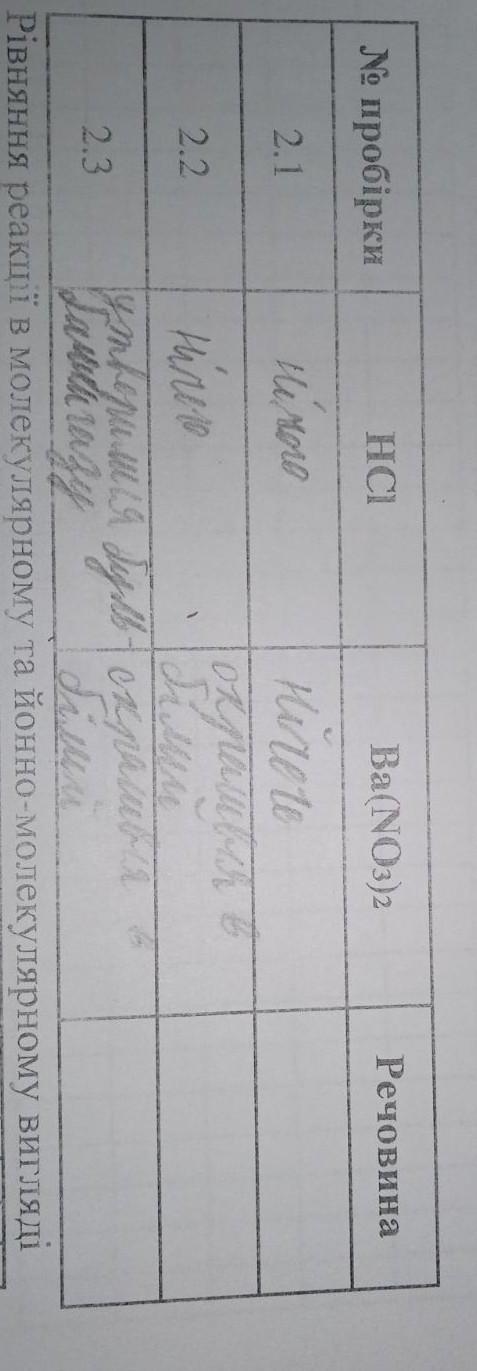 № пробірки HCl Ba(NO3)2 Речовина
2.1 Нічого Нічого
2.2 Нічого окрамився в
білий
2.3 утворилися буль- окрамився в
газу білий
Рівняння реакції в молекулярному та йонно-молекулярному вигляді